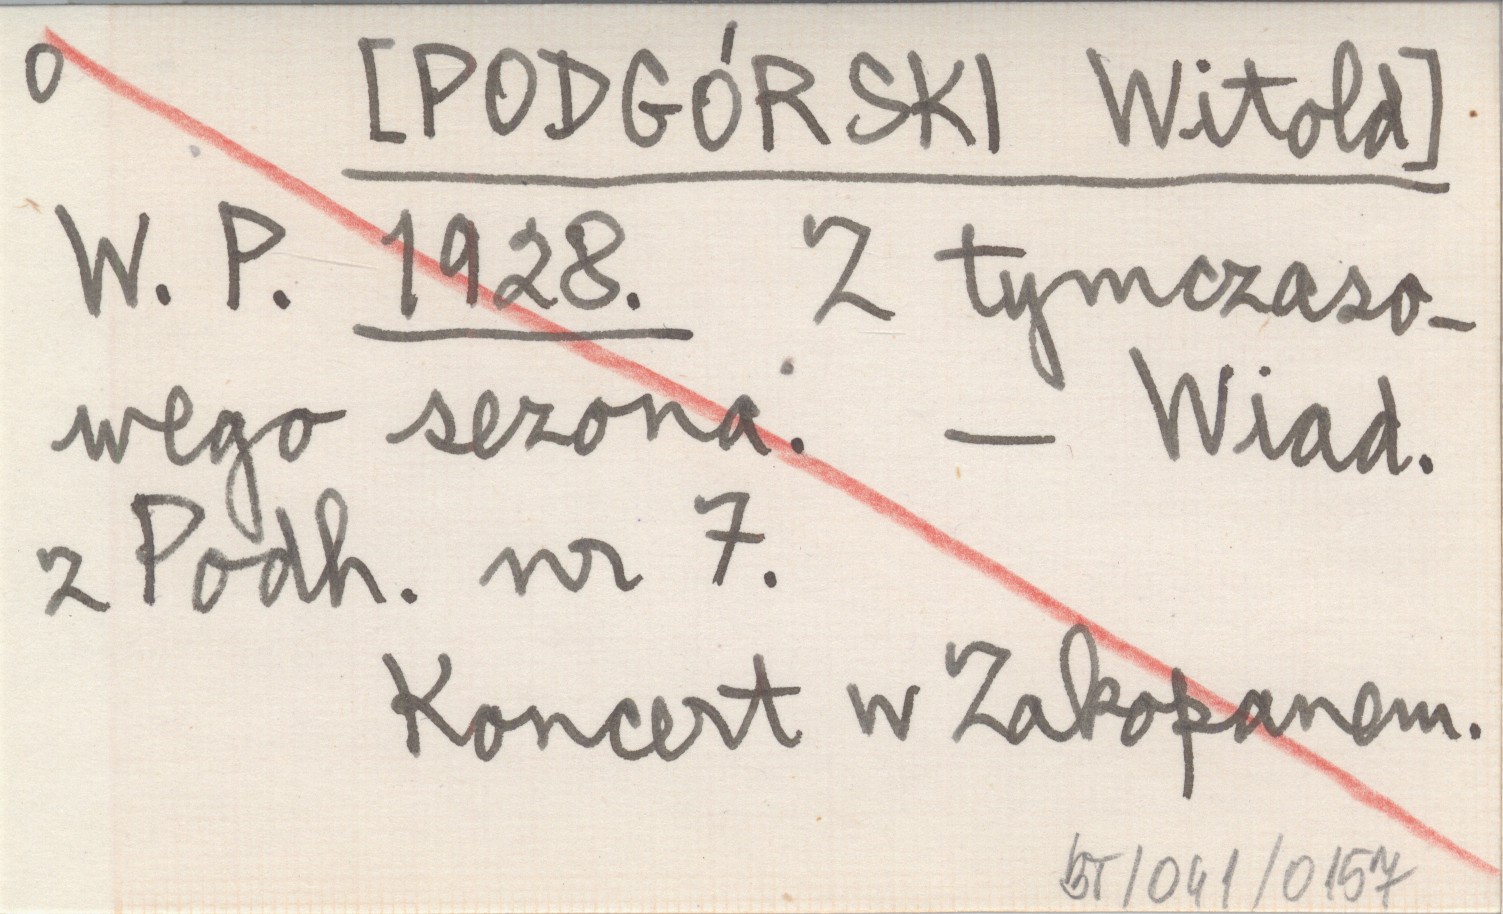 o [PODGÓRSKI Witold]
W. P. 1928. Z tymczaso-
wego sezona. — Wiad.
z Podh. nr 7.
Koncert w Zakopanem.
BT/041/0157